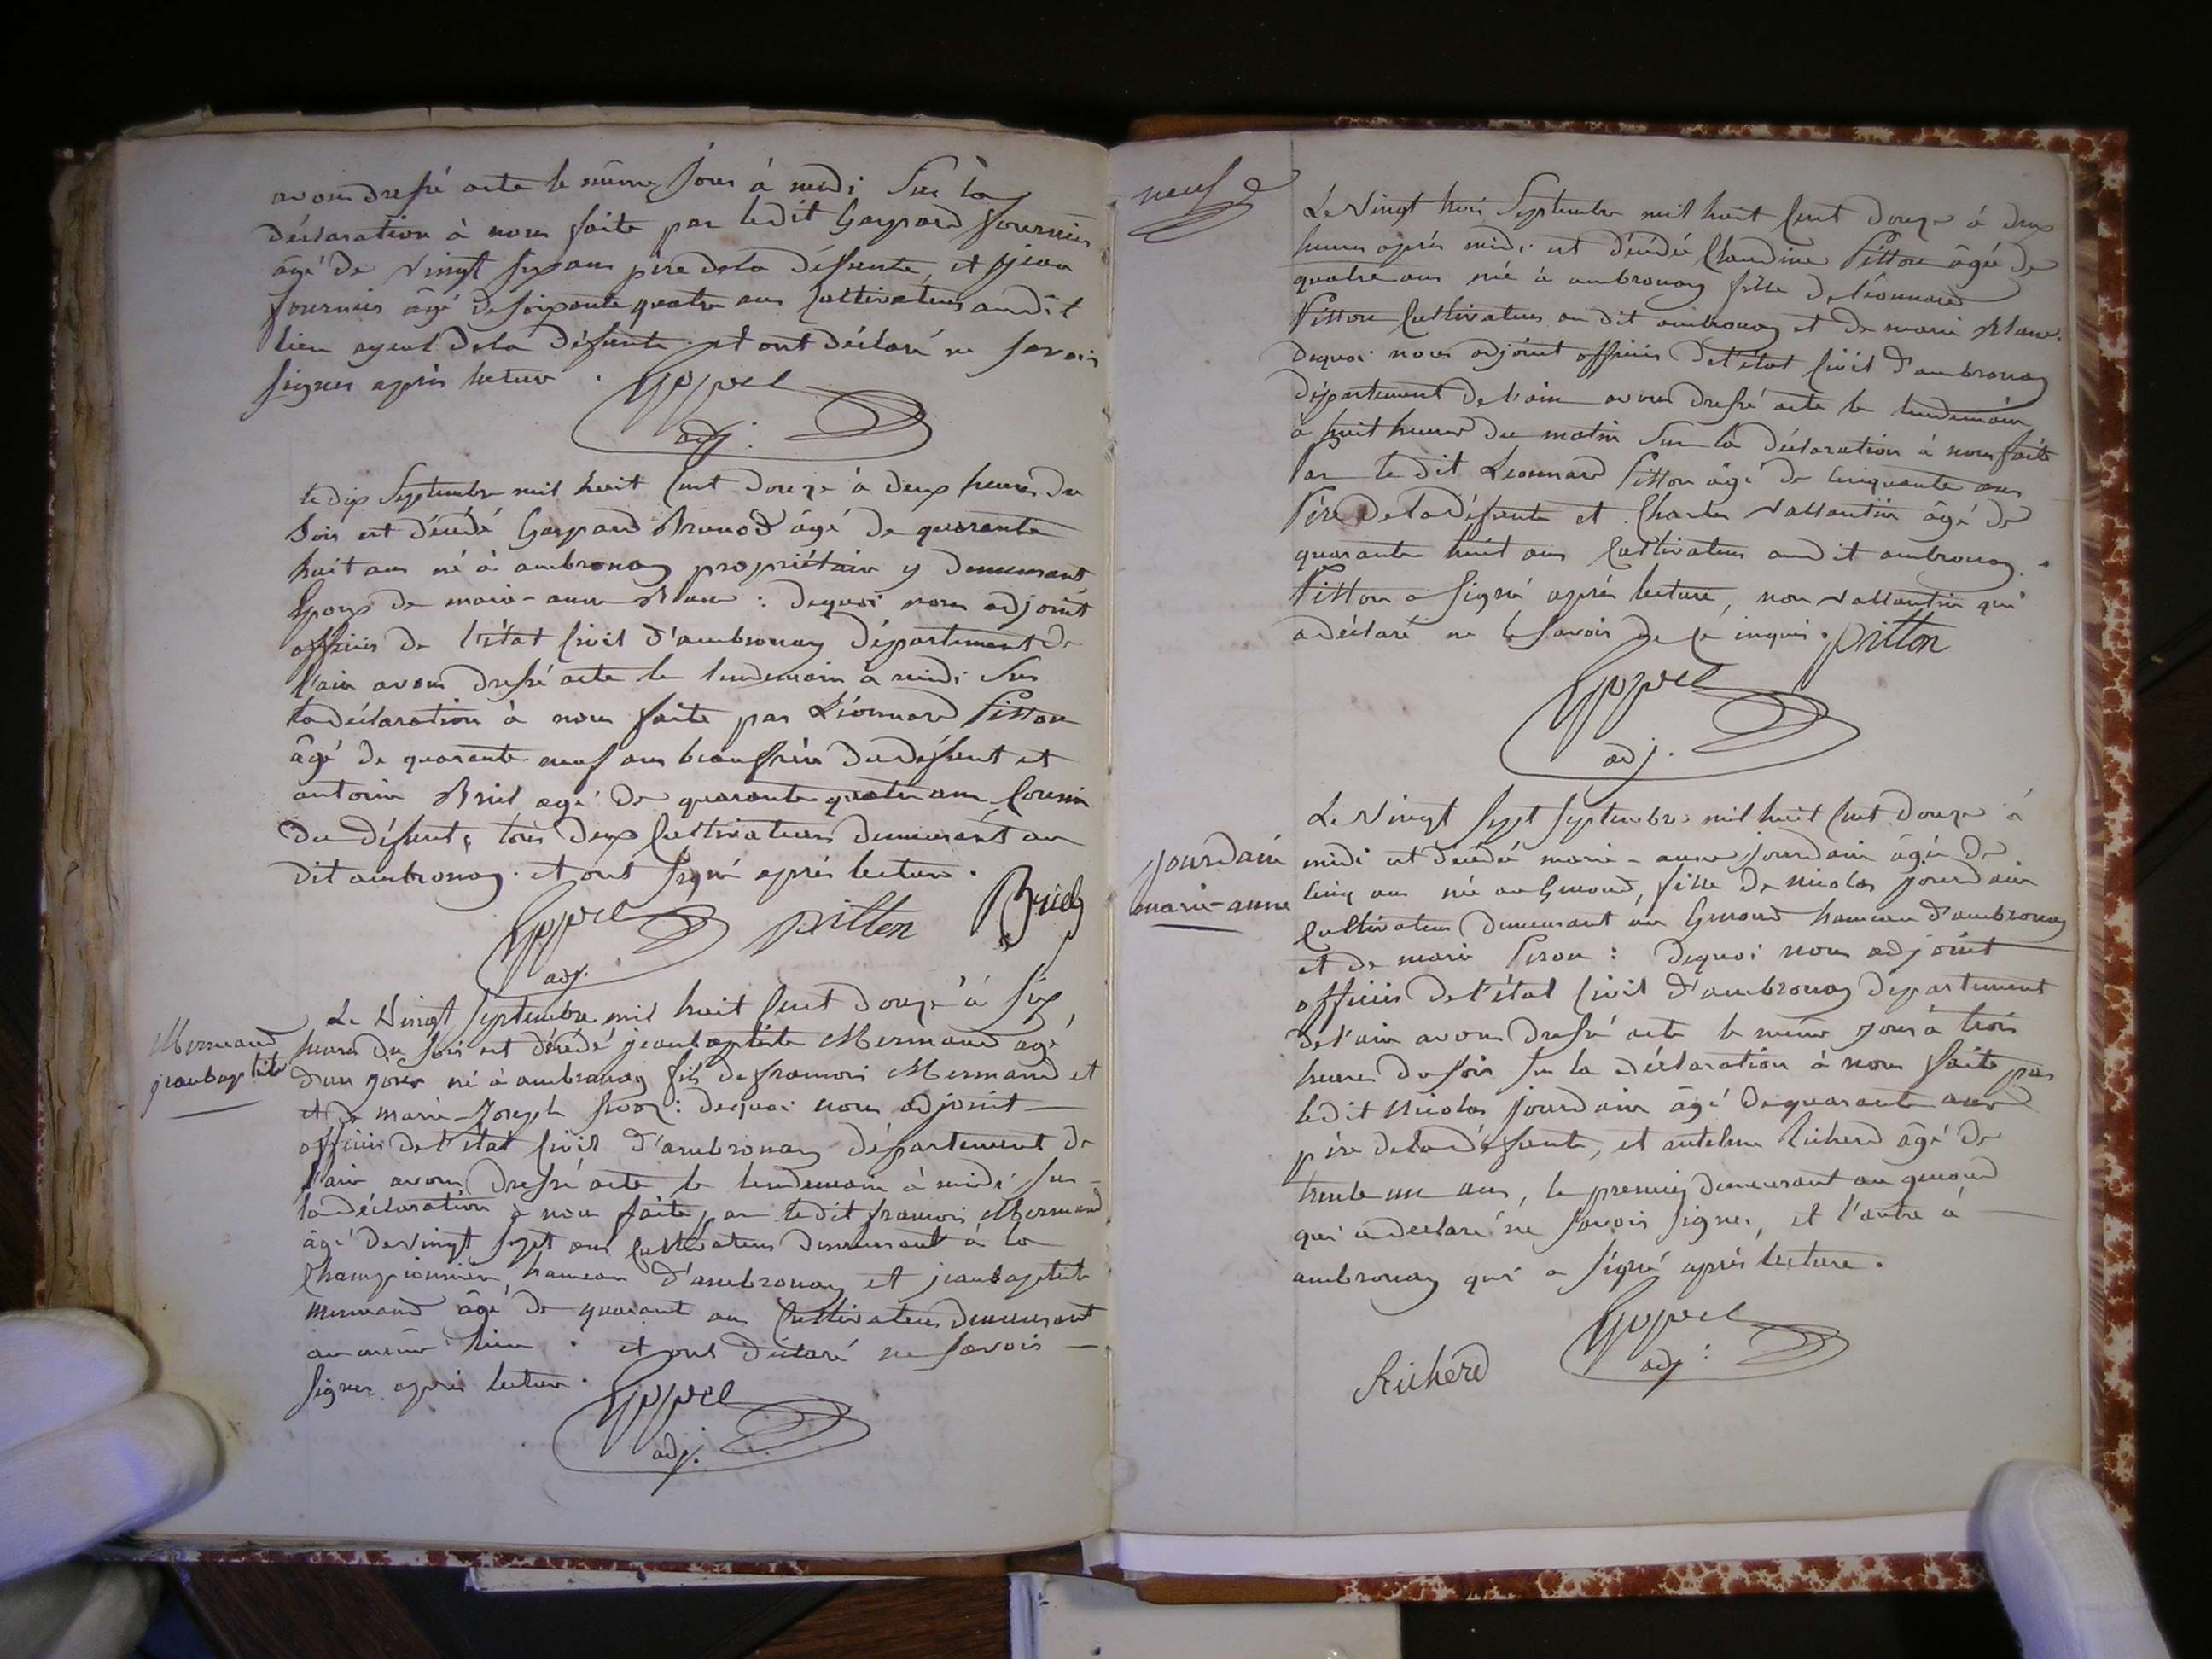 avons dressé acte le même jour à midi sur la
déclaration à nous faite par ledit Gaspard fournier
âgé de vingt six ans père de la défunte, et jean
fournier âgé de soixante quatre ans cultivateur audit
lieu ayeul de la défunte. et ont déclaré ne savoir
signer après lecture.
adj.
le dix Septembre mil huit cent douze à deux heures du
soir est décédé Gaspard Brunod âgé de quarante
huit ans né à ambronay propriétaire y demeurant
Epoux de marie-anne Blanc : dequoi nous adjoint
officier de l'état civil d'ambronay département de
l'ain avons dressé acte le lendemain à midi sur
la déclaration à nous faite par Léonnard Pitton
âgé de quarante neuf ans beaufrère du défunt et
antoine Bricl agé de quarante quatre ans cousin
du défunt, tous deux cultivateurs demeurant au
dit ambronay. et ont signé après lecture.
adj. pitton
Mermand
jeanbaptiste
Le Vingt Septembre mil huit cent douze à six
heures du soir est décédé jeanbaptiste Mermand agé
d'un jour né à ambronay fils de francois Mermand et
et de marie-Joseph : dequoi nous adjoint
officier de l'état civil d'ambronay département de
l'ain avons dressé acte le lendemain à midi sur
la déclaration à nous faite par ledit francois Mermand
âgé de vingt sept ans cultivateur demeurant à la
Championnière, hameau d'ambronay et jeanbaptiste
mermand âgé de quarant ans cultivateur demeurant
au même lieu . et ont déclaré ne savoir
signer après lecture.
adj.
neuf
Le Vingt trois Septembre mil huit cent douze à deux
heures après midi est décédée Claudine Pitton âgée de
quatre ans né à ambronay fille de léonnard
Pitton cultivateur au dit ambronay et de marie Blanc.
dequoi nous adjoint officier de l'état civil d'ambronay
département de l'ain avons dressé acte le lendemain
à huit heures du matin sur la déclaration à nous faite
Par le dit Leonnard Pitton âgé de cinquante ans
Père de la défunte et Charles Vallantin âgé de
quarante huit ans cultivateur audit ambronay.
Pitton a signé après lecture, non Vallantin qui
a déclaré ne le savoir de ce inquis. pitton
adj.
jourdain
marie-anne
Le Vingt sept septembre mil huit cent douze à
midi est décédée marie-anne jourdain âgée de
cinq ans née au Genoud, fille de nicolas jourdain
cultivateur demeurant au Genoud hameau d'ambronay
et de marie Piron : dequoi nous adjoint
officier de l'état civil d'ambronay departement
de l'ain avons dressé acte le même jour à trois
heures du soir sur la déclaration à nous faite par
ledit nicolas jourdain âgé de quarante ans
père de la défunte, et antelme Richerd âgé de
trente un ans, le premier demeurant au genoud
qui a declaré ne savoir signer, et l'autre à
ambronay qui a signé après lecture.
Richerd adj.